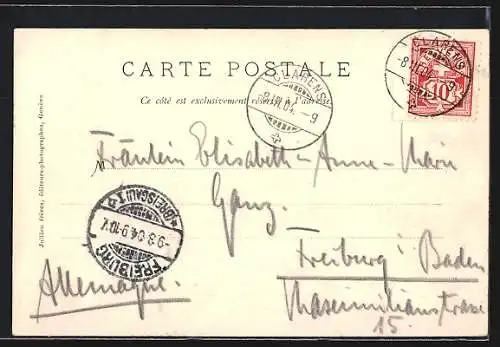 CARTE POSTALE
Ce côté est exclusivement réservé à l'adresse
CLARENS
-8.III.04.-9
CLARENS
-8.III.04.-9
10
M
Fräulein Elisabeth-Anne-Marie
Ganz.
Freiburg i Baden
Maximilianstrasse
15.
Allemagne.
FREIBURG
-9.3.04.9-10V.
*(BREISGAU)1
Jullien frères, éditeurs-photographes, Genève